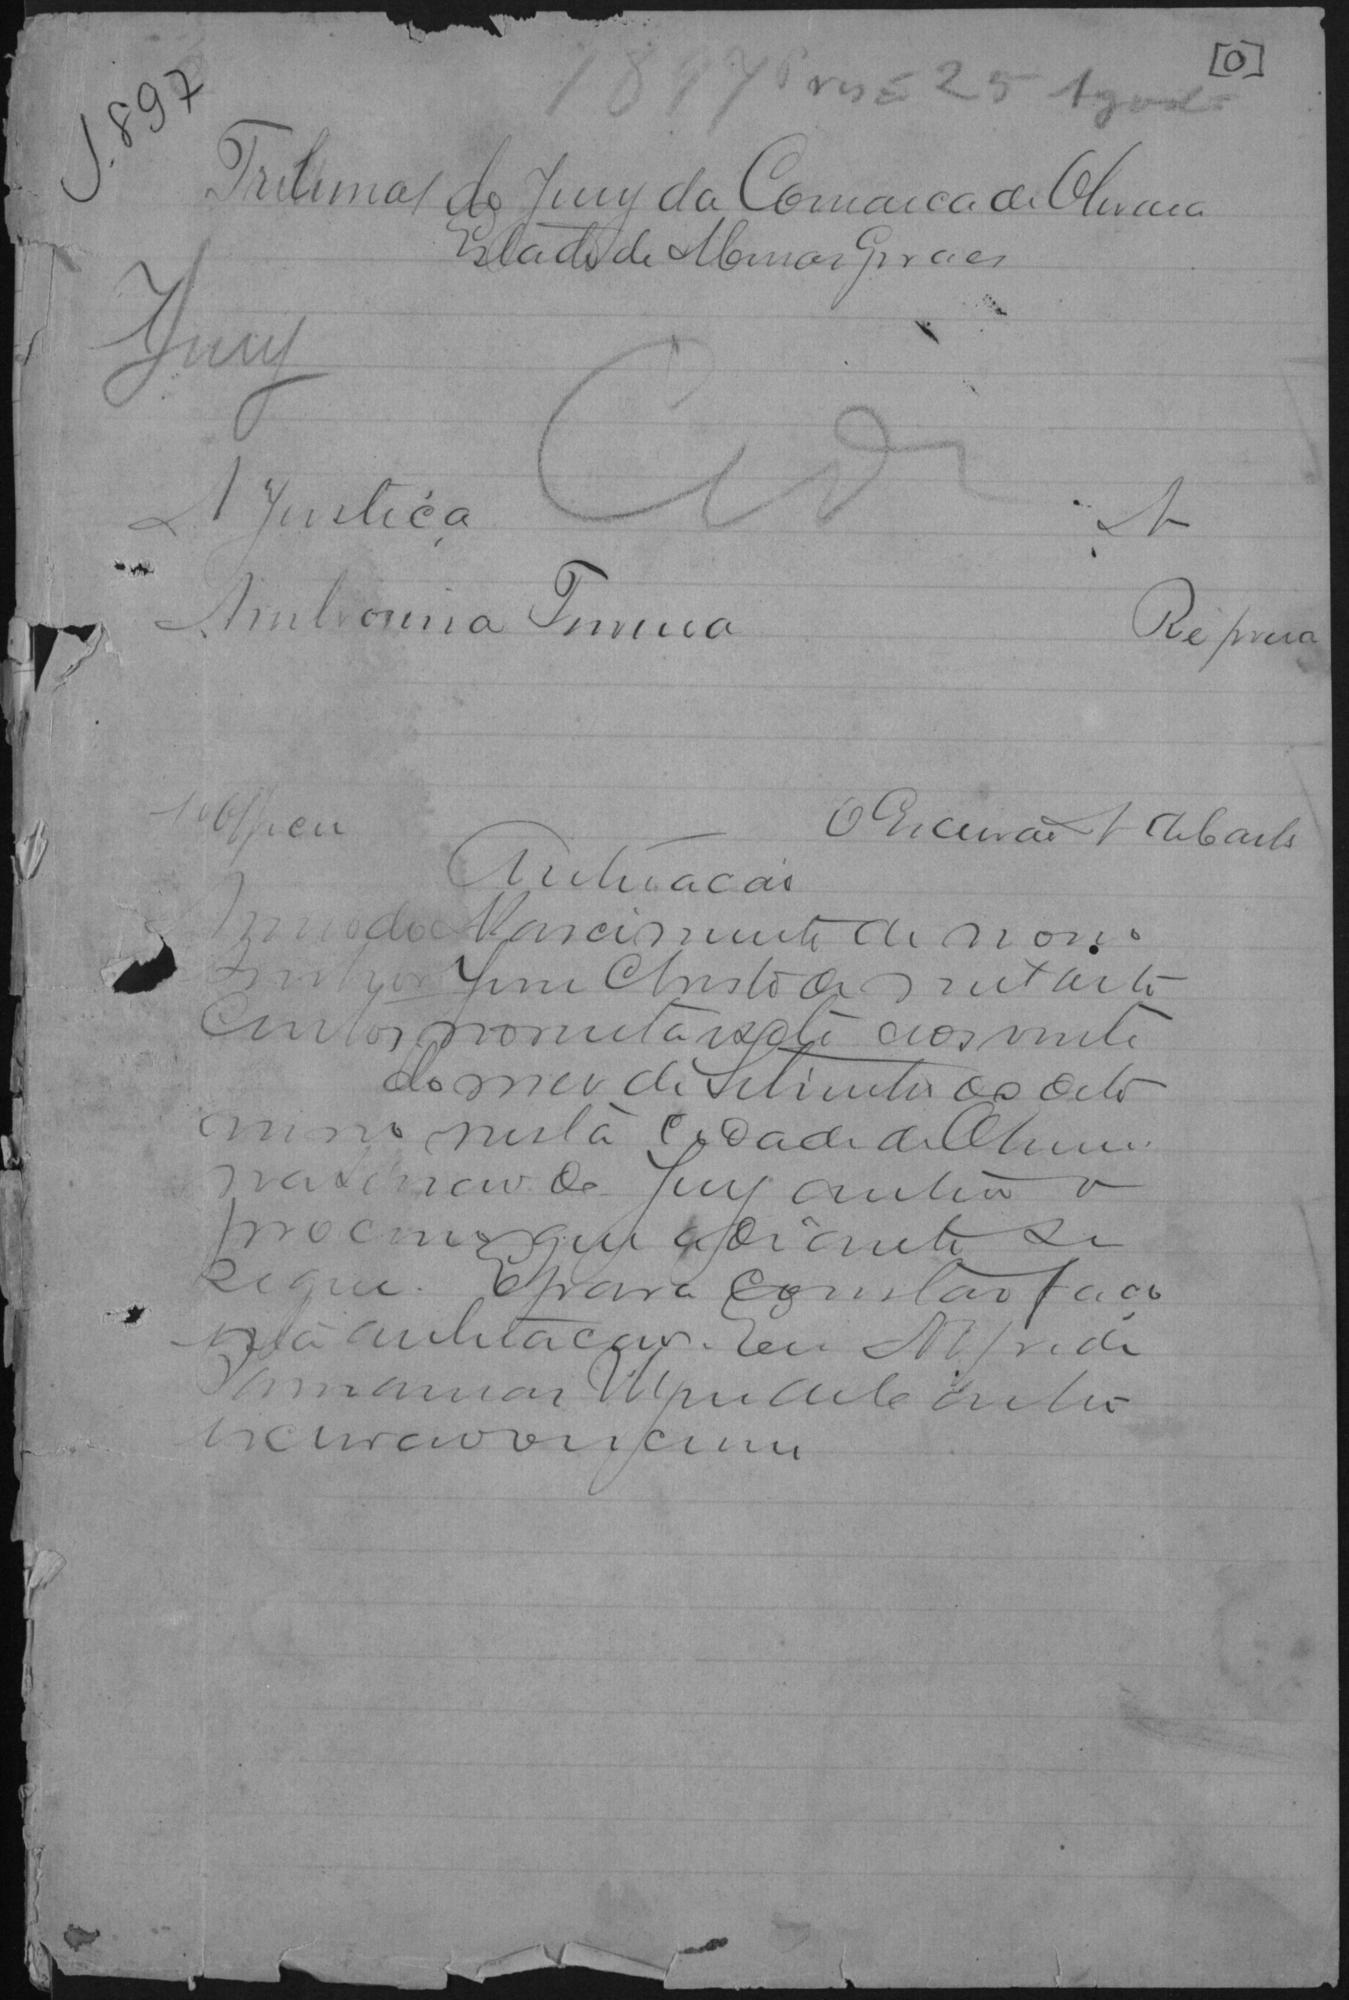 [0]
1897 Pres. 25 Agosto
J.897
Tribunal do Jury da Comarca de Oliveira
Estado de Minas Geraes
Jury
A Justiça A
Ambrosina Ré presa
1º Officio O Escrivão A
Autuacão
Anno do Nascimento de nosso
Senhor Jesus Christo de mil oito
centos noventa e sete aos vinte
do mez de Setembro do dito
anno nesta Cidade de Oliveira
de Jury autuo o
processo que adiante se
segue. E para constar faço
esta autuacão. Eu Alfredo
escrivão o escrevi